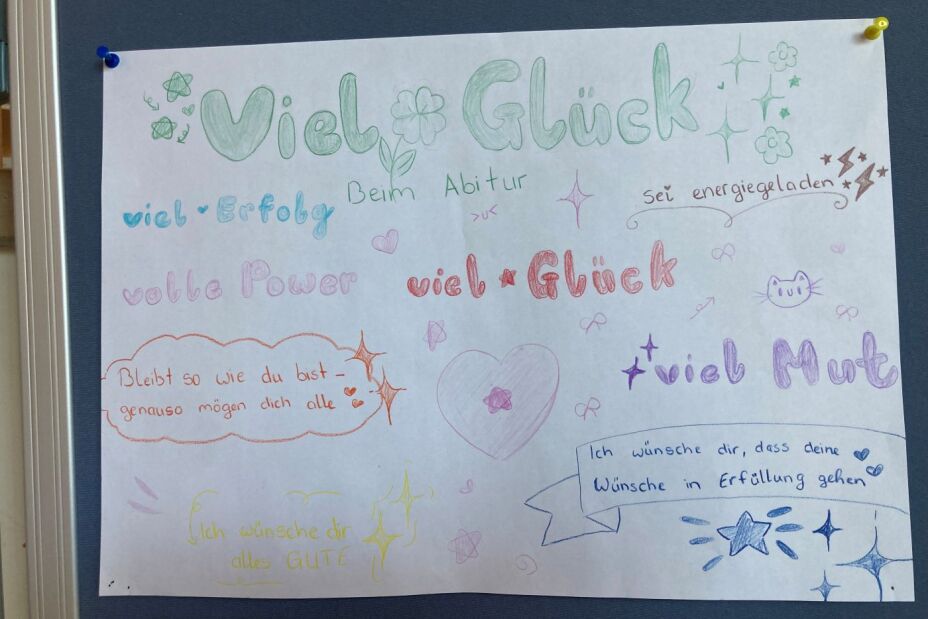 Viel Glück
Beim Abitur
sei energiegeladen
viel Erfolg
volle Power
viel Glück
viel Mut
Bleibt so wie du bist -
genauso mögen dich alle
Ich wünsche dir, dass deine
Wünsche in Erfüllung gehen
Ich wünsche dir
alles GUTE